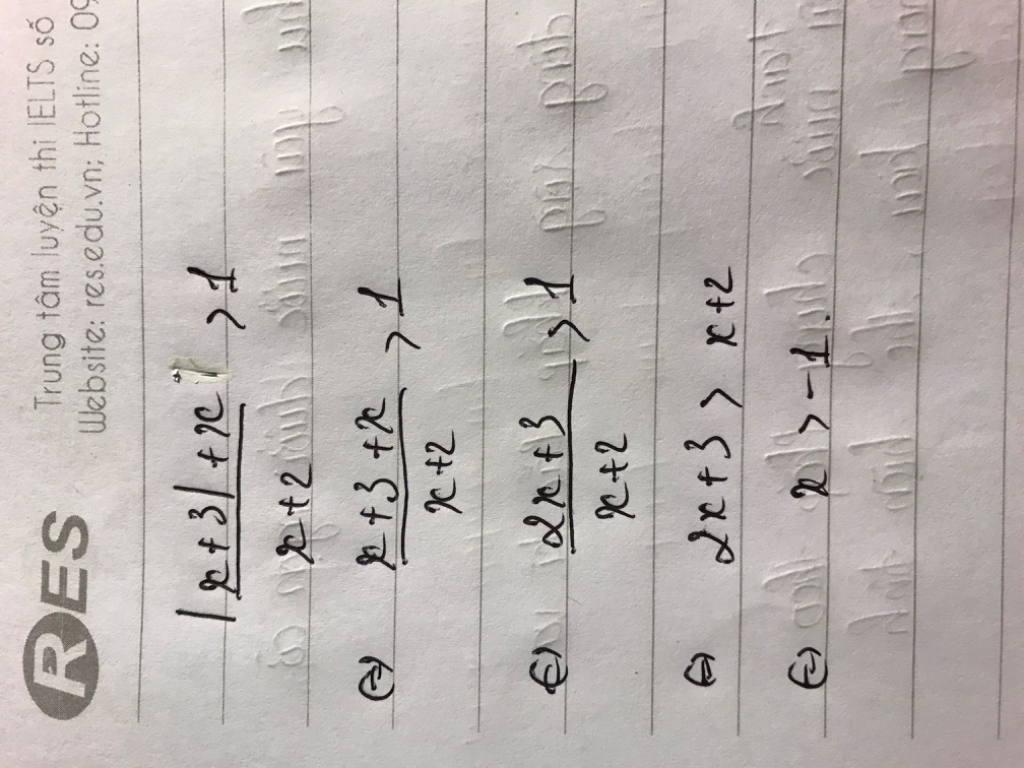 RES
Trung tâm luyện thi IELTS số
Website: res.edu.vn; Hotline: 09
|x+3|+x / x+2 > 1
⇔ x+3+x / x+2 > 1
⇔ 2x+3 / x+2 > 1
⇔ 2x+3 > x+2
⇔ x > -1.